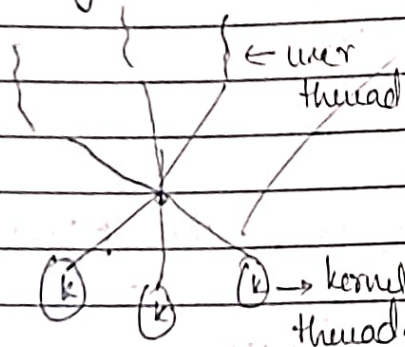 ← user
thread
k k k → kernel
thread.